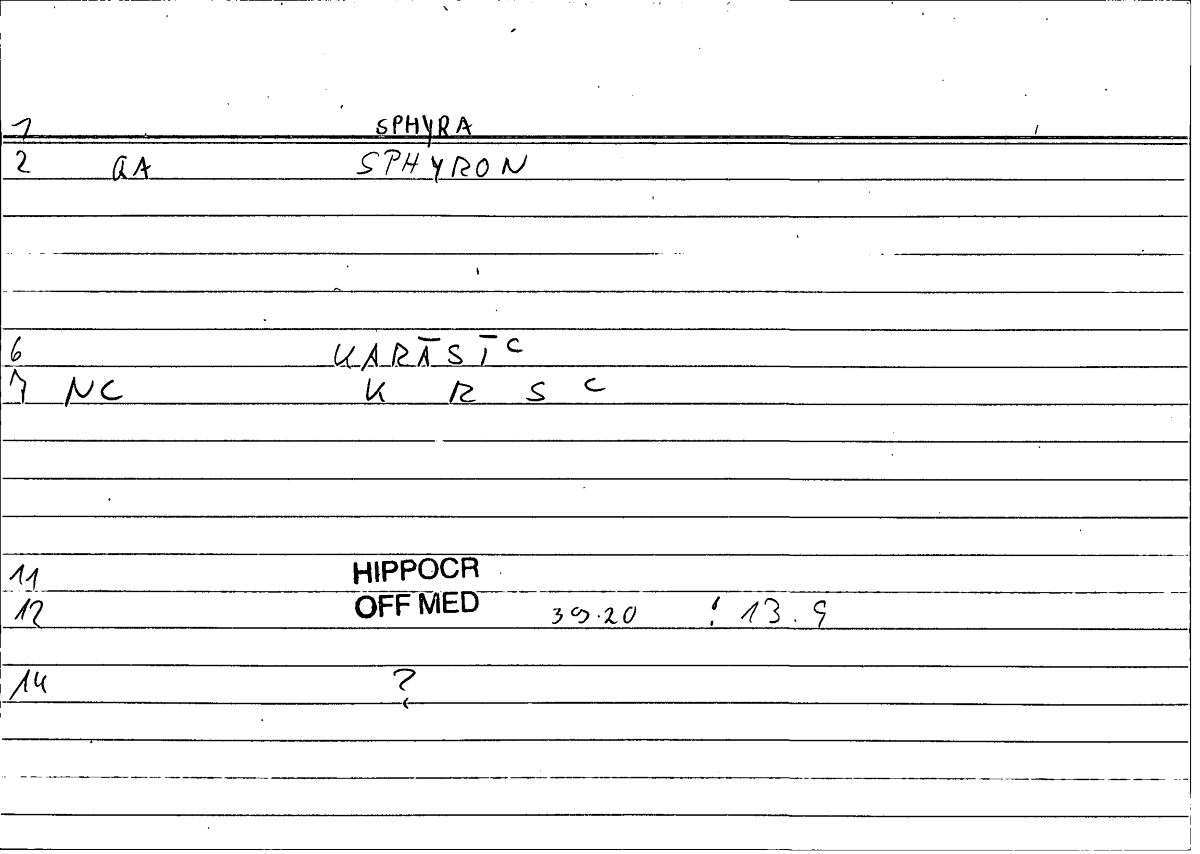 1 SPHYRA
2 QA SPHYRON
6 KARĀSĪC
7 NC K R S C
11 HIPPOCR
12 OFF MED 39.20 : 13.9
14 ?